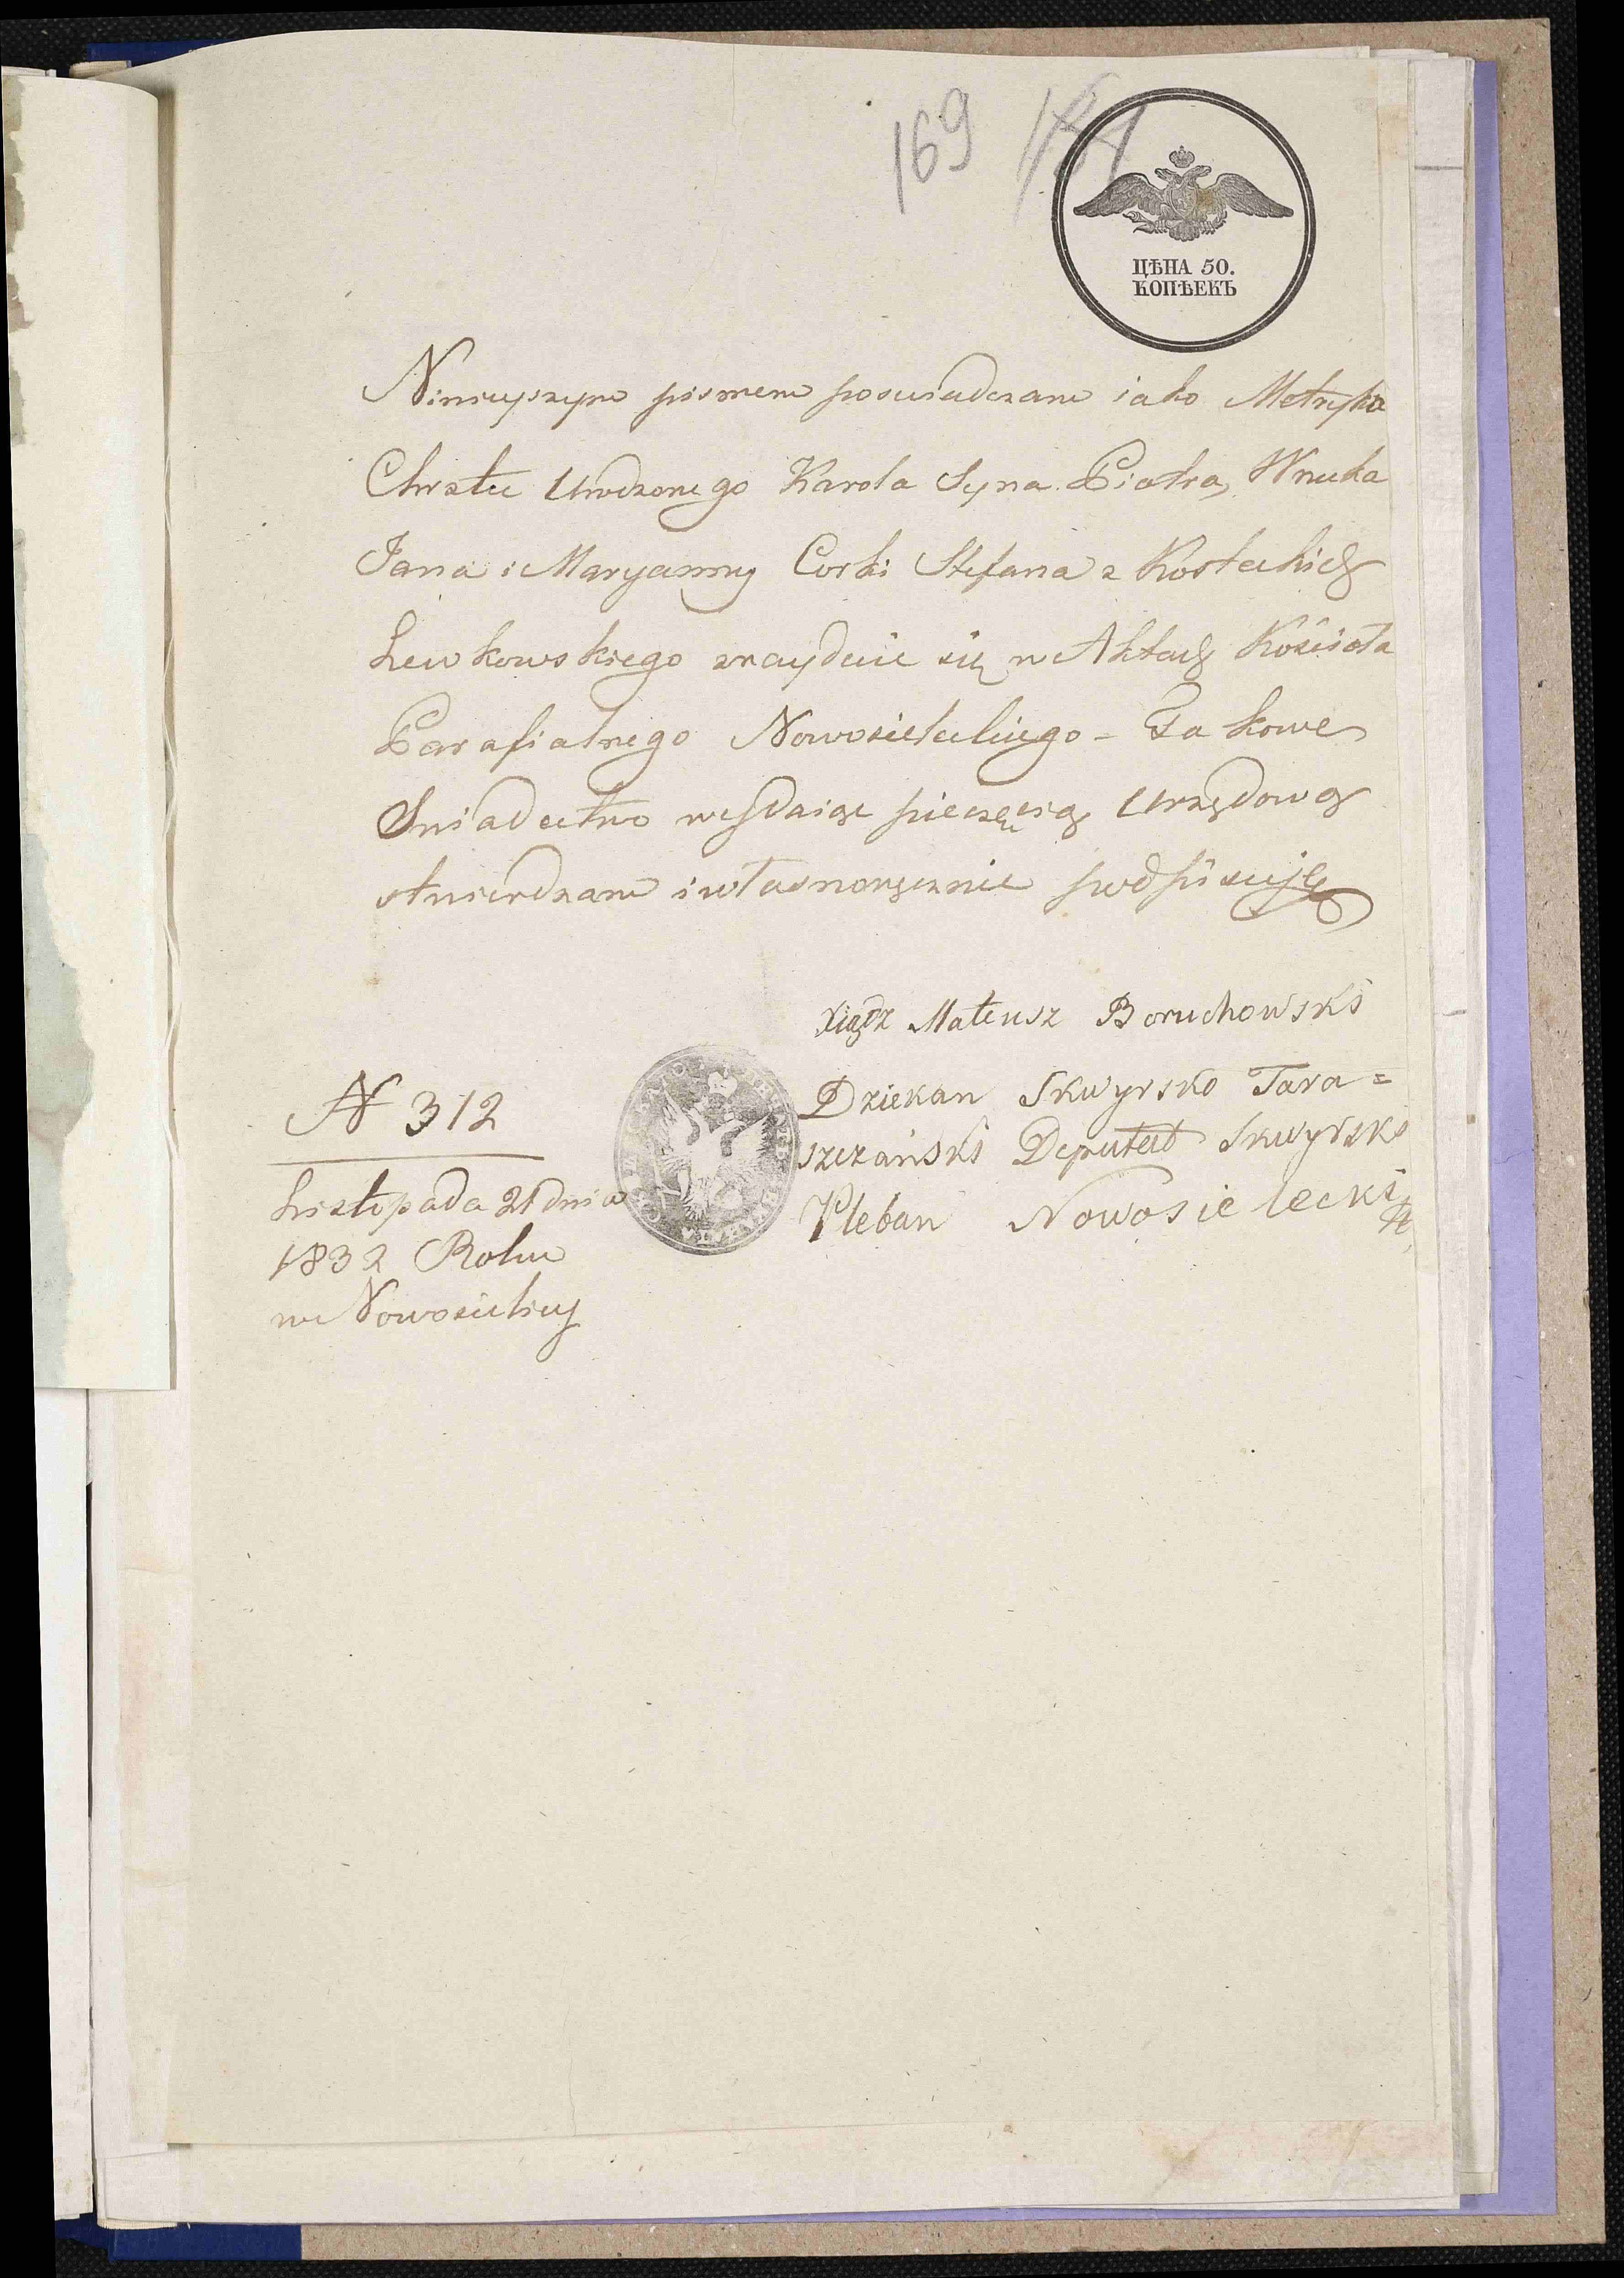 169
ЦѢНА 50.
КОПѢЕКЪ
Ninieyszym pismem poswiadczam iako Metryka
Chrztu Urodzonego Karola Syna Piotra, Wnuka
Jana i Maryanny Corki Stefana z Kosteckich
Lewkowskiego znayduie się w Aktach Kościoła
Parafialnego Nowosieleckiego - Takowe
Swiadectwo wydaiąc pieczęcią Urzędową
stwierdzam i własnoręcznie podpisuję
Xiądz Mateusz Boruchowski
Dziekan Skwyrsko Tara=
szczański Deputat Skwyrski
Pleban Nowosielecki
N 312
Listopada 21 dnia
1832 Roku
w Nowosielicy